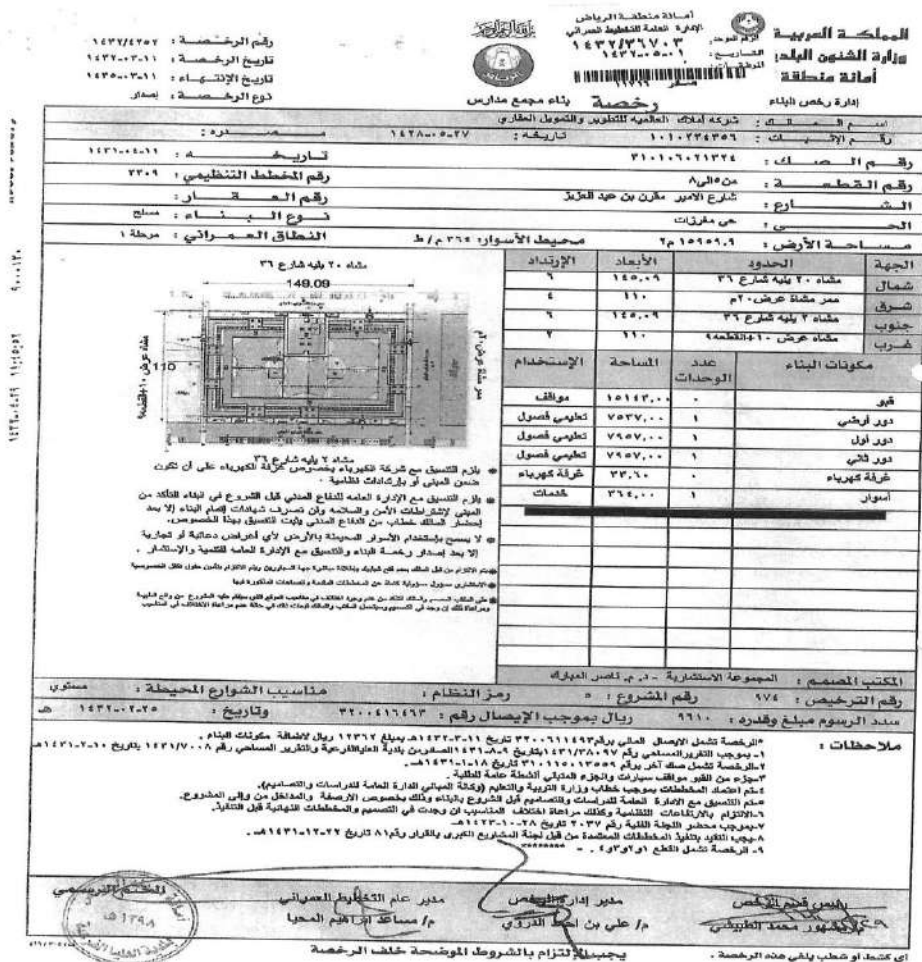 المملكة العربية
وزارة الشئون البلد
أمانة منطقة
إدارة رخص البناء
أمانة منطقة الرياض
الإدارة العامة للتخطيط العمراني
الرقم الموحد: ١٤٣٢/٣٦٧٠٣
التاريخ: ١٤٣٢-٠٥-٠١
رقم الرخصة : ١٤٣٢/٤٢٥٢
تاريخ الرخصة : ١٤٣٢-٠٣-١١
تاريخ الإنتهاء : ١٤٣٥-٠٣-١١
نوع الرخصة : إصدار
رخصة بناء مجمع مدارس
اسم المالك : شركة أملاك العالمية للتطوير والتمويل العقاري
رقم الإثبات : ١٠١٠٢٣٤٣٥٦ تاريخه : ١٤٢٨-٠٥-٢٧ مصدره :
رقم الصك : ٣١٠١٠٦٠٢١٣٢٤ تاريخه : ١٤٣١-٠٤-١١
رقم القطعة : من٥الى٨ رقم المخطط التنظيمي : ٢٢٠٩
الشارع : شارع الامير مقرن بن عبد العزيز رقم العقار :
الحي : حى مغرزات نوع البناء : مسلح
مساحة الأرض : ١٥٩٥٩.٩ م٢ محيط الأسوار: ٣٦٤ م/ط النطاق العمراني : مرحلة ١
الجهة الحدود الأبعاد الإرتداد
شمال مشاه ٢٠ يليه شارع ٣٦ ١٤٥.٠٩ ٦
شرق ممر مشاة عرض٢٠م ١١٠ ٤
جنوب مشاه ٢ يليه شارع ٣٦ ١٤٥.٠٩ ٦
غرب مشاه عرض ١٠+القطعه٩ ١١٠ ٢
مكونات البناء عدد الوحدات المساحة الإستخدام
قبو ٠ ١٥١٤٣,٠٠ مواقف
دور أرضي ١ ٧٥٣٧,٠٠ تعليمي فصول
دور أول ١ ٧٩٥٧,٠٠ تعليمي فصول
دور ثاني ١ ٧٩٥٧,٠٠ تعليمي فصول
غرفة كهرباء ٠ ٣٣,٦٠ غرفة كهرباء
أسوار ١ ٣٦٤,٠٠ خدمات
مشاه ٢٠ يليه شارع ٣٦
149.09
110
مشاه عرض ١٠+القطعه٩
مشاه ٢ يليه شارع ٣٦
يلزم التنسيق مع شركة الكهرباء بخصوص غرفة الكهرباء على أن تكون
ضمن المبنى أو بإرتدادات نظامية .
يلزم التنسيق مع الإدارة العامه للدفاع المدني قبل الشروع في البناء للتأكد من
المبنى لإشتراطات الأمن والسلامه ولن تصرف شهادات إتمام البناء إلا بعد
إحضار المالك خطاب من الدفاع المدني يثبت التنسيق بهذا الخصوص.
لا يسمح بإستخدام الأسوار المحيطة بالأرض لأي أغراض دعائية أو تجارية
إلا بعد إصدار رخصة البناء والتنسيق مع الإدارة العامه للتنمية والإستثمار .
المكتب المصمم : المجموعة الاستشارية - د. م. ناصر المبارك
رقم الترخيص : ٩٧٤ رقم المشروع : ٥ رمز النظام : مناسيب الشوارع المحيطة : مستوي
سدد الرسوم مبلغ وقدره : ٩٦١٠ ريال بموجب الإيصال رقم : ٣٢٠٠٤١٦٤٦٣ وتاريخ : ١٤٣٢-٠٢-٢٥ هـ
ملاحظات :
*الرخصة تشمل الايصال المالي برقم ٣٢٠٠٦١١٤٩٣ تاريخ ١١-٣-١٤٣٢هـ بمبلغ ١٢٣٦٢ ريال لاضافة مكونات البناء .
١- بموجب التقريرالمساحي رقم ١٤٣١/٣٨٠٩٧بتاريخ ٩-٨-١٤٣١الصادرمن بلدية العلياالفرعية والتقرير المساحي رقم ١٤٣١/٧٠٠٨ بتاريخ ١٠-٢-١٤٣١هـ
٢-الرخصة تشمل صك آخر برقم ٣١٠١١٥٠١٣٥٥٩ تاريخ ١٨-١-١٤٣١هـ.
٣-جزء من القبو مواقف سيارات والجزء المتبقي أنشطة عامة للطلبة .
٤-تم اعتماد المخططات بموجب خطاب وزارة التربية والتعليم (وكالة المباني الدارة العامة للدراسات والتصاميم).
٥-تم التنسيق مع الادارة العامة للدراسات والتصاميم قبل الشروع بالبناء وذلك بخصوص الارصفة والمداخل من وإلى المشروع.
٦-الالتزام بالارتفاعات النظامية وكذلك مراعاة اختلاف المناسيب ان وجدت في التصميم والمخططات النهائية قبل التنفيذ.
٧-بموجب محضر اللجنة الفنية رقم ٢٠٣٧ تاريخ ٢٨-١٠-١٤٢٣هـ
٨-يجب التقيد بتنفيذ المخططات المعتمدة من قبل لجنة المشاريع الكبرى بالقرار رقم٨١ تاريخ ٢٢-١٢-١٤٣١هـ.
٩- الرخصة تشمل القطع ١و٢و٣و٤ . - ********
رئيس قسم الرخص مدير إدارة الرخص مدير عام التخطيط العمراني الختم الرسمي
مشهور محمد الطبيشي م/ علي بن احمد الدروي م/ مساعد ابراهيم المحيا
١٣٩٨ هـ
أي كشط أو شطب يلغي هذه الرخصة . يجب الإلتزام بالشروط الموضحة خلف الرخصة